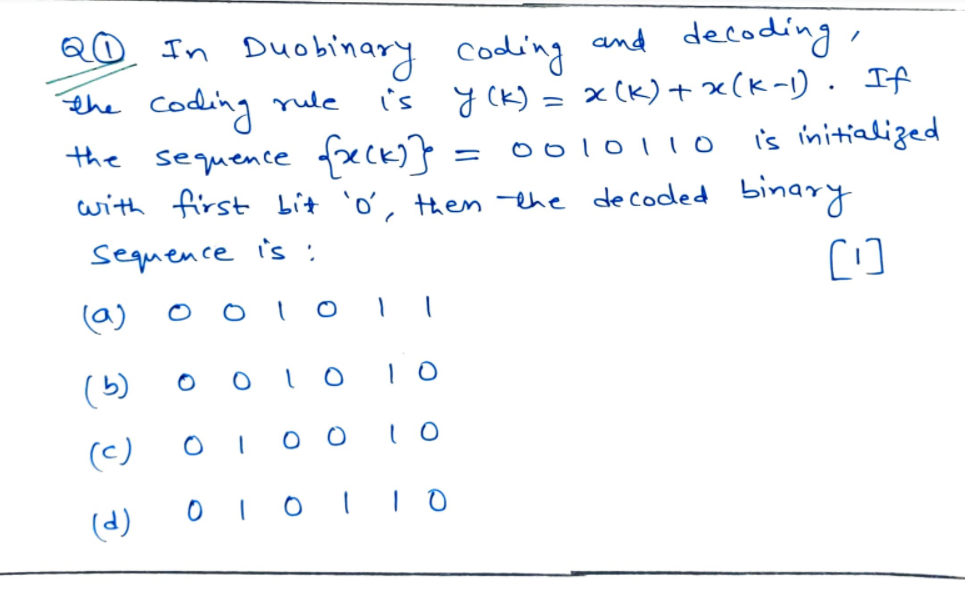 Q① In Duobinary coding and decoding,
the coding rule is y(k) = x(k) + x(k-1). If
the sequence {x(k)} = 0010110 is initialized
with first bit '0', then the decoded binary
sequence is : [1]
(a) 0 0 1 0 1 1
(b) 0 0 1 0 1 0
(c) 0 1 0 0 1 0
(d) 0 1 0 1 1 0